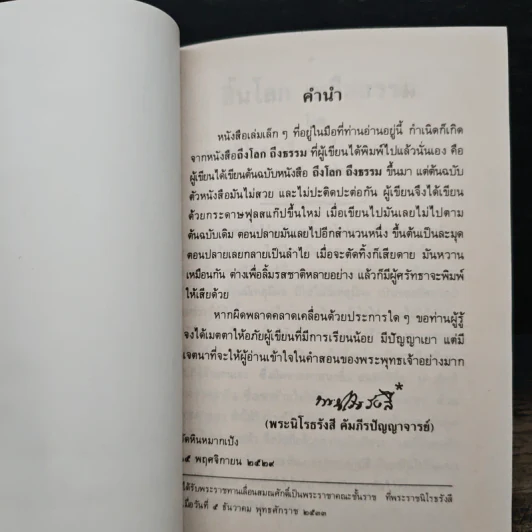 คำนำ
หนังสือเล่มเล็ก ๆ ที่อยู่ในมือที่ท่านอ่านอยู่นี้ กำเนิดก็เกิด
จากหนังสือถึงโลก ถึงธรรม ที่ผู้เขียนได้พิมพ์ไปแล้วนั่นเอง คือ
ผู้เขียนได้เขียนต้นฉบับหนังสือ ถึงโลก ถึงธรรม ขึ้นมา แต่ต้นฉบับ
ตัวหนังสือมันไม่สวย และไม่ปะติดปะต่อกัน ผู้เขียนจึงได้เขียน
ด้วยกระดาษฟุลสแก๊ปขึ้นใหม่ เมื่อเขียนไปมันเลยไม่ไปตาม
ต้นฉบับเดิม ตอนปลายมันเลยไปอีกสำนวนหนึ่ง ขึ้นต้นเป็นละมุด
ตอนปลายเลยกลายเป็นลำไย เมื่อจะตัดทิ้งก็เสียดาย มันหวาน
เหมือนกัน ต่างเพื่อลิ้มรสชาติหลายอย่าง แล้วก็มีผู้ศรัทธาจะพิมพ์
ให้เสียด้วย
หากผิดพลาดคลาดเคลื่อนด้วยประการใด ๆ ขอท่านผู้รู้
จงได้เมตตาให้อภัยผู้เขียนที่มีการเรียนน้อย มีปัญญาเยา แต่มี
เจตนาที่จะให้ผู้อ่านเข้าใจในคำสอนของพระพุทธเจ้าอย่างมาก
*
(พระนิโรธรังสี คัมภีรปัญญาจารย์)
วัดหินหมากเป้ง
๕ พฤศจิกายน ๒๕๒๙
ได้รับพระราชทานเลื่อนสมณศักดิ์เป็นพระราชาคณะชั้นราช ที่พระราชนิโรธรังสี
เมื่อวันที่ ๕ ธันวาคม พุทธศักราช ๒๕๓๓